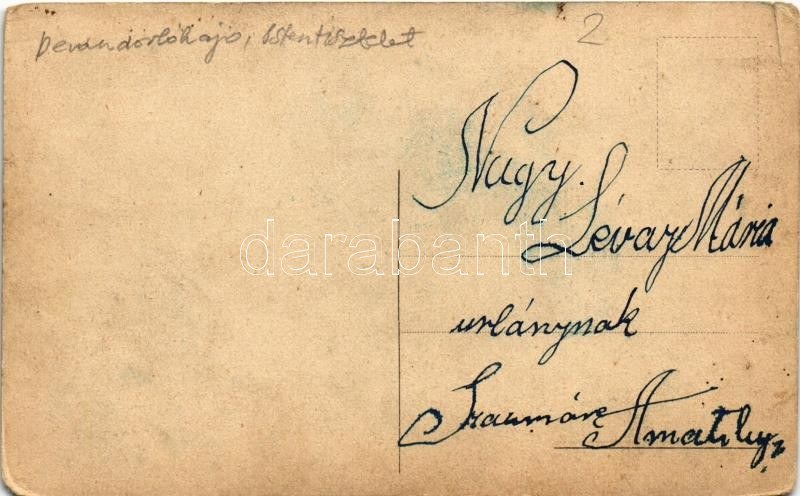 kivándorlóhajó, Istentisztelet
2
Nagy.
Lévay Mária
urlánynak
darabanth